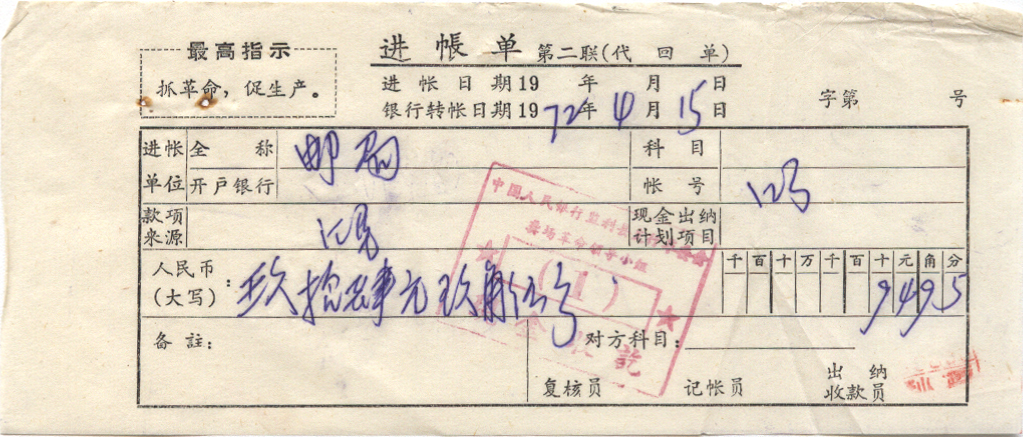 最高指示
抓革命，促生产。
进帳单 第二联(代回单)
进帐日期19 年 月 日
银行转帐日期1972年4月15日
字第 号
进帐单位 全称 邮局 科目
开户银行 帐号
款项来源 现金出纳计划项目
人民币(大写)： 玖拾肆元玖角伍分
千百十万千百十元角分
9495
备註：
对方科目：
复核员 记帐员 出纳收款员
中国人民银行监利
革命领导小组
(1)
现金收讫